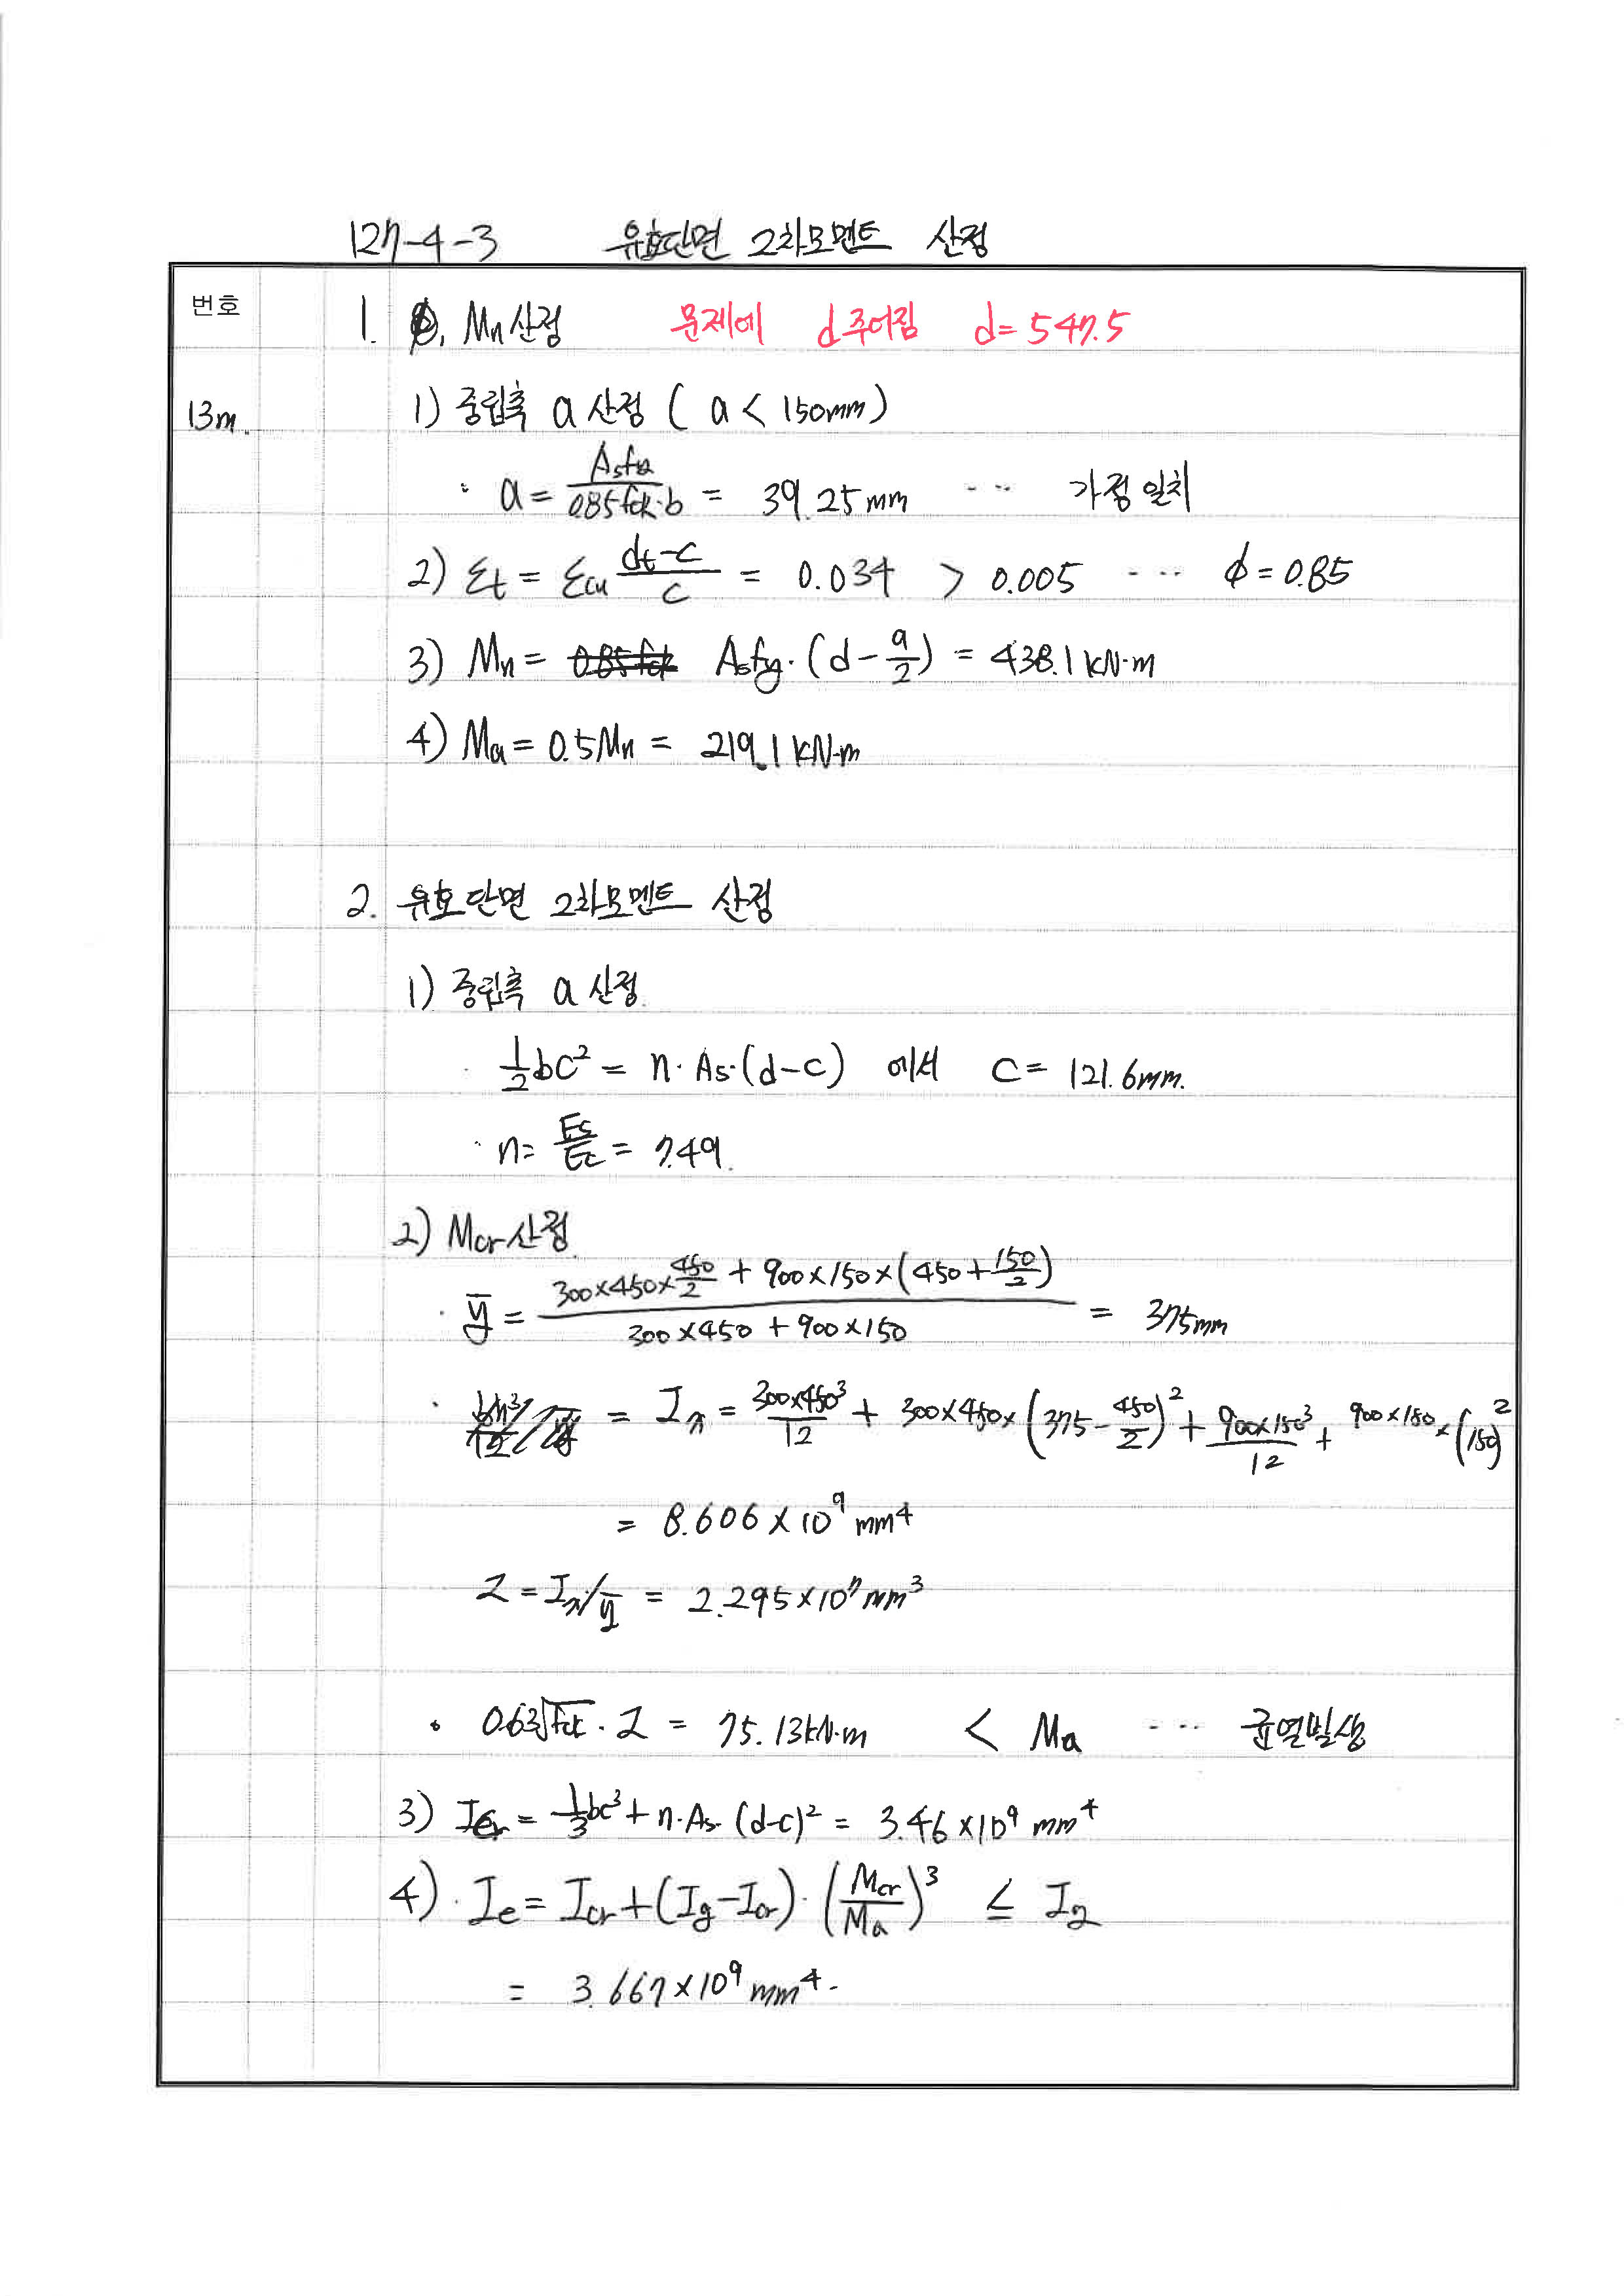 127-4-3 유효단면 2차모멘트 산정
번호
1. Mn산정 문제에 d주어짐 d=547.5
13m.
1) 중립축 a 산정 ( a < 150mm)
· a = Asfy/0.85fck·b = 39.25mm ··· 가정 일치
2) εt = εcu (dt-c)/c = 0.034 > 0.005 ··· φ=0.85
3) Mn = 0.85fck Asfy·(d-a/2) = 438.1kN·m
4) Ma = 0.5Mn = 219.1kN·m
2. 유효단면 2차모멘트 산정
1) 중립축 a 산정.
· 1/2bc² = n·As·(d-c) 에서 c = 121.6mm.
· n = Es/Ec = 7.49.
2) Mcr산정.
· ȳ = (300×450×450/2 + 900×150×(450+150/2))/(300×450 + 900×150) = 375mm
· = Ix = 300×450³/12 + 300×450×(375-450/2)² + 900×150³/12 + 900×150×(150)²
= 8.606×10⁹mm⁴
Z = Ix/ȳ = 2.295×10⁷mm³
· 0.63√fck·Z = 75.13kN·m < Ma ··· 균열발생
3) Icr = 1/3bc³+n·As·(d-c)² = 3.46×10⁹mm⁴
4)· Ie = Icr+(Ig-Icr)·(Mcr/Ma)³ ≤ Ig
= 3.667×10⁹mm⁴.